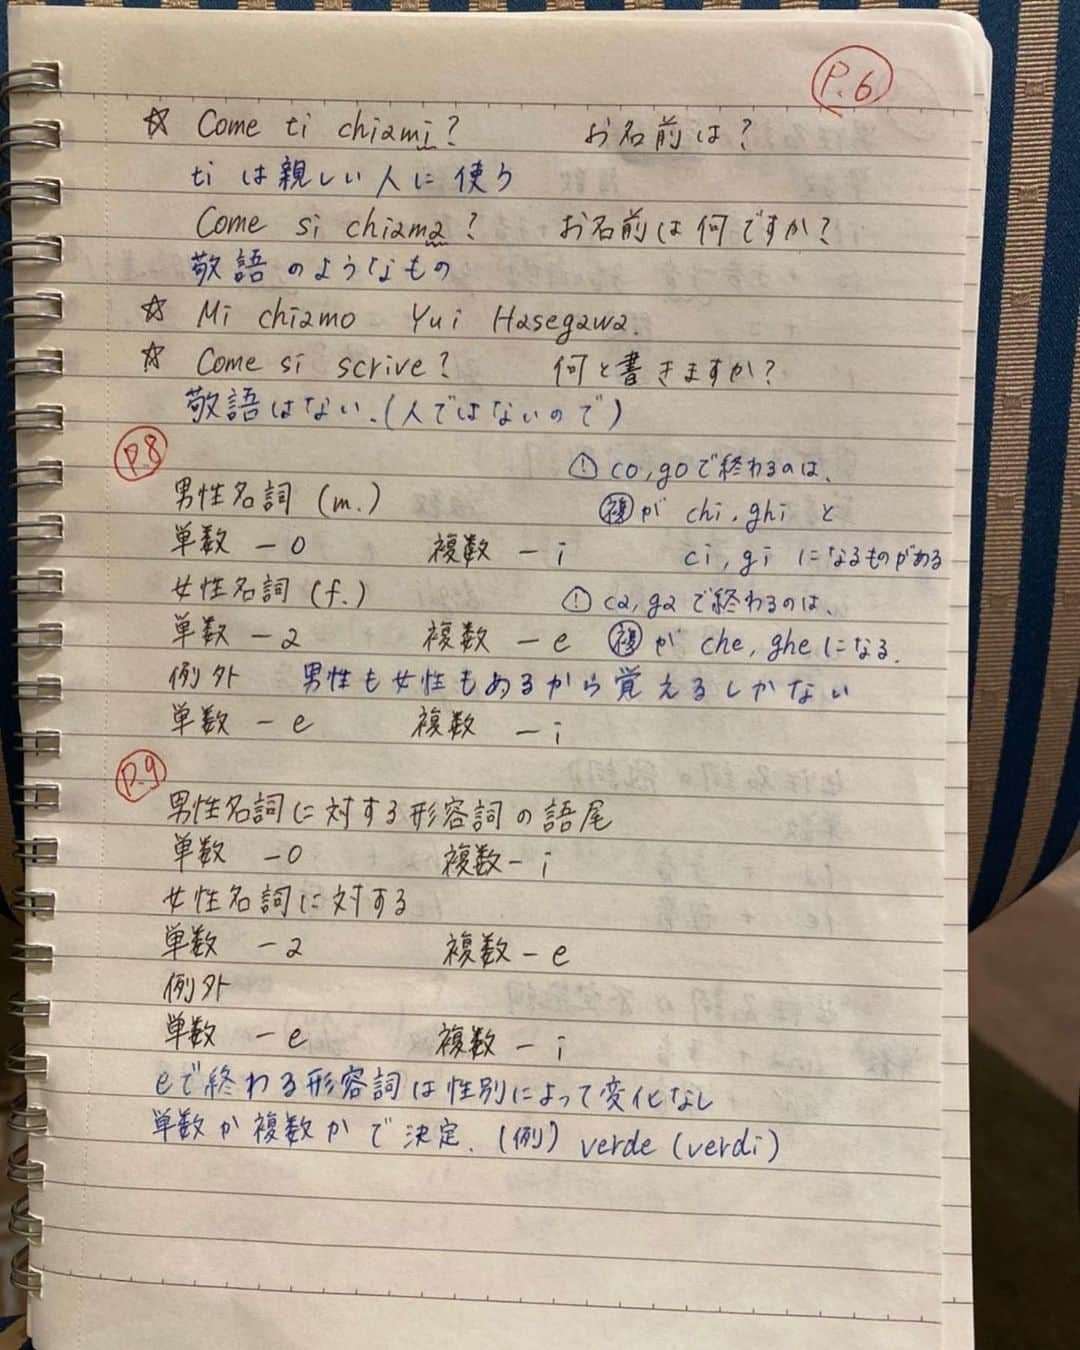 P.6
☆ Come ti chiami? お名前は?
ti は親しい人に使う
Come si chiama? お名前は何ですか?
敬語のようなもの
☆ Mi chiamo Yui Hasegawa.
☆ Come si scrive? 何と書きますか?
敬語はない.(人ではないので)
P.8
! co,goで終わるのは、
男性名詞 (m.)
複が chi,ghi と
単数 -o 複数 -i
ci,gi になるものがある
女性名詞 (f.)
! ca,gaで終わるのは、
単数 -a 複数 -e
複が che,gheになる.
例外 男性も女性もあるから覚えるしかない
単数 -e 複数 -i
P.9
男性名詞に対する形容詞の語尾
単数 -o 複数-i
女性名詞に対する
単数 -a 複数-e
例外
単数 -e 複数-i
eで終わる形容詞は性別によって変化なし
単数か複数かで決定.(例) verde (verdi)